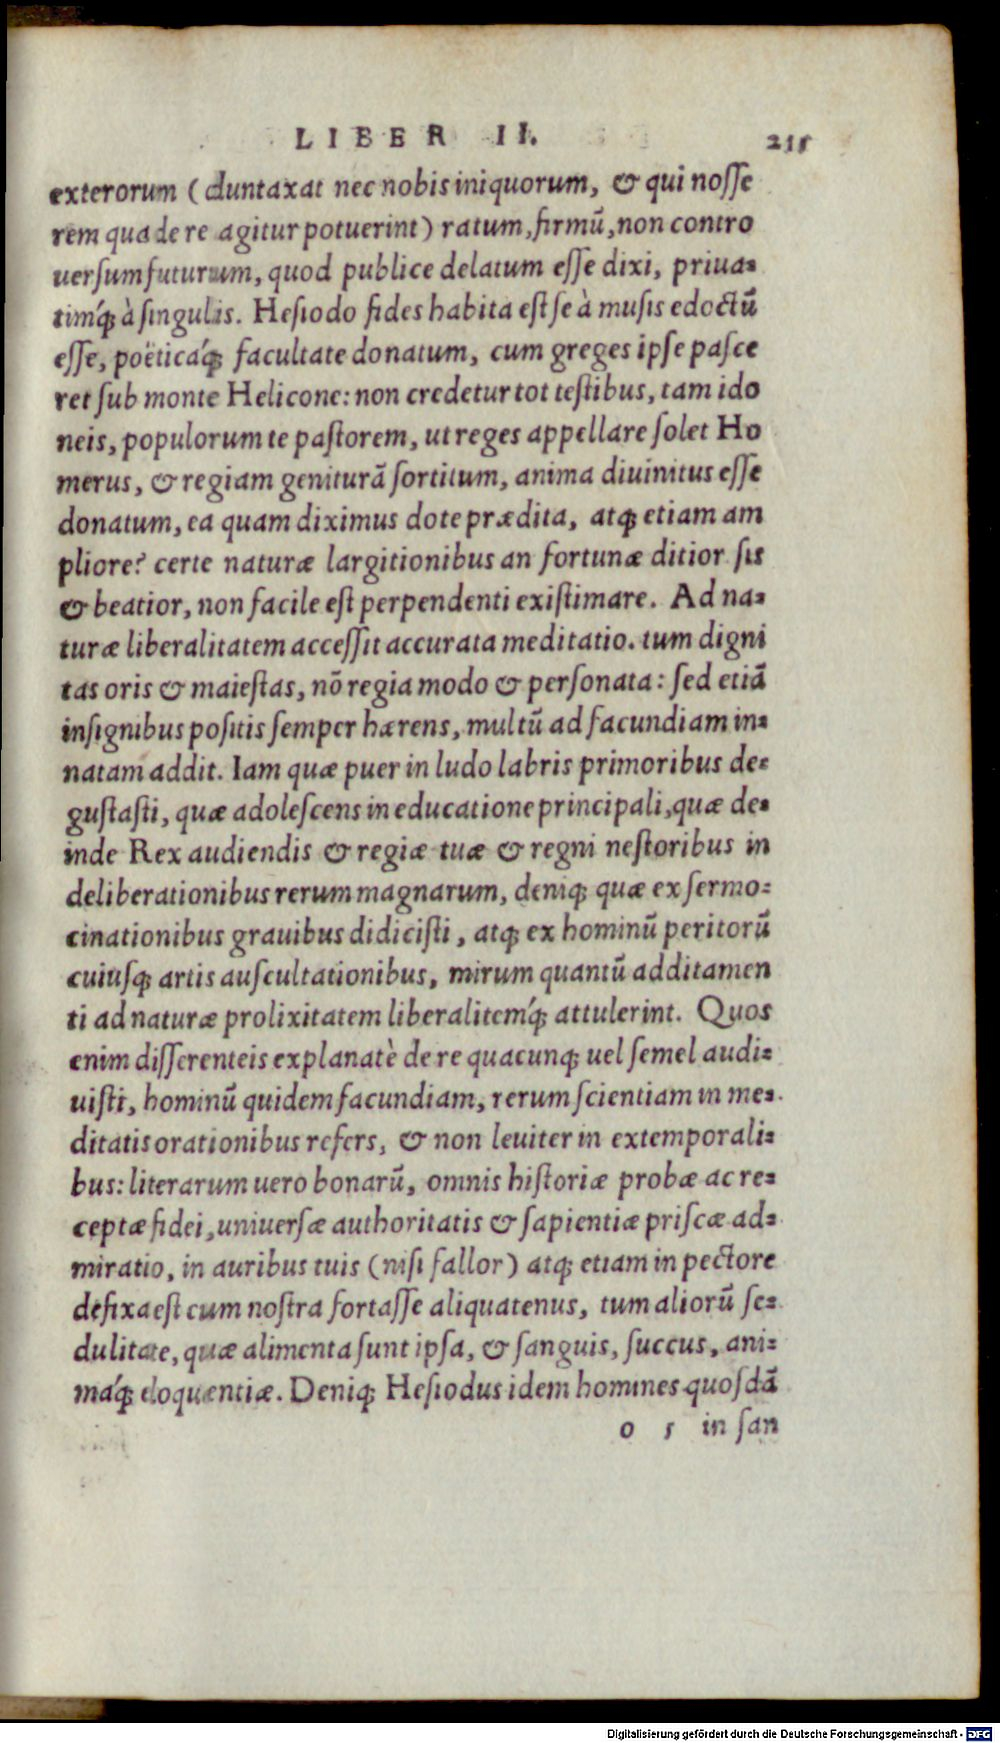 LIBER II. 215
exterorum (duntaxat nec nobis iniquorum, & qui nosse
rem qua de re agitur potuerint) ratum, firmū, non contro
uersum futurum, quod publice delatum esse dixi, priua-
timq́; à singulis. Hesiodo fides habita est se à musis edoctū
esse, poëticaq́; facultate donatum, cum greges ipse pasce
ret sub monte Helicone: non credetur tot testibus, tam ido
neis, populorum te pastorem, ut reges appellare solet Ho
merus, & regiam geniturā sortitum, anima diuinitus esse
donatum, ea quam diximus dote prædita, atq; etiam am
pliore? certe naturæ largitionibus an fortunæ ditior sis
& beatior, non facile est perpendenti existimare. Ad na-
turæ liberalitatem accessit accurata meditatio. tum digni
tas oris & maiestas, nō regia modo & personata: sed etiā
insignibus positis semper hærens, multū ad facundiam in-
natam addit. Iam quæ puer in ludo labris primoribus de-
gustasti, quæ adolescens in educatione principali, quæ de-
inde Rex audiendis & regiæ tuæ & regni nestoribus in
deliberationibus rerum magnarum, deniq; quæ ex sermo-
cinationibus grauibus didicisti, atq; ex hominū peritorū
cuiusq; artis auscultationibus, mirum quantū additamen
ti ad naturæ prolixitatem liberalitemq́; attulerint. Quos
enim differenteis explanatè de re quacunq; uel semel audi-
uisti, hominū quidem facundiam, rerum scientiam in me-
ditatis orationibus refers, & non leuiter in extemporali-
bus: literarum uero bonarū, omnis historiæ probæ ac re-
ceptæ fidei, uniuersæ authoritatis & sapientiæ priscæ ad-
miratio, in auribus tuis (nisi fallor) atq; etiam in pectore
defixa est cum nostra fortasse aliquatenus, tum aliorū se-
dulitate, quæ alimenta sunt ipsa, & sanguis, succus, ani-
maq́; eloquentiæ. Deniq; Hesiodus idem homines quosdā
o 5 in san
Digitalisierung gefördert durch die Deutsche Forschungsgemeinschaft - DFG